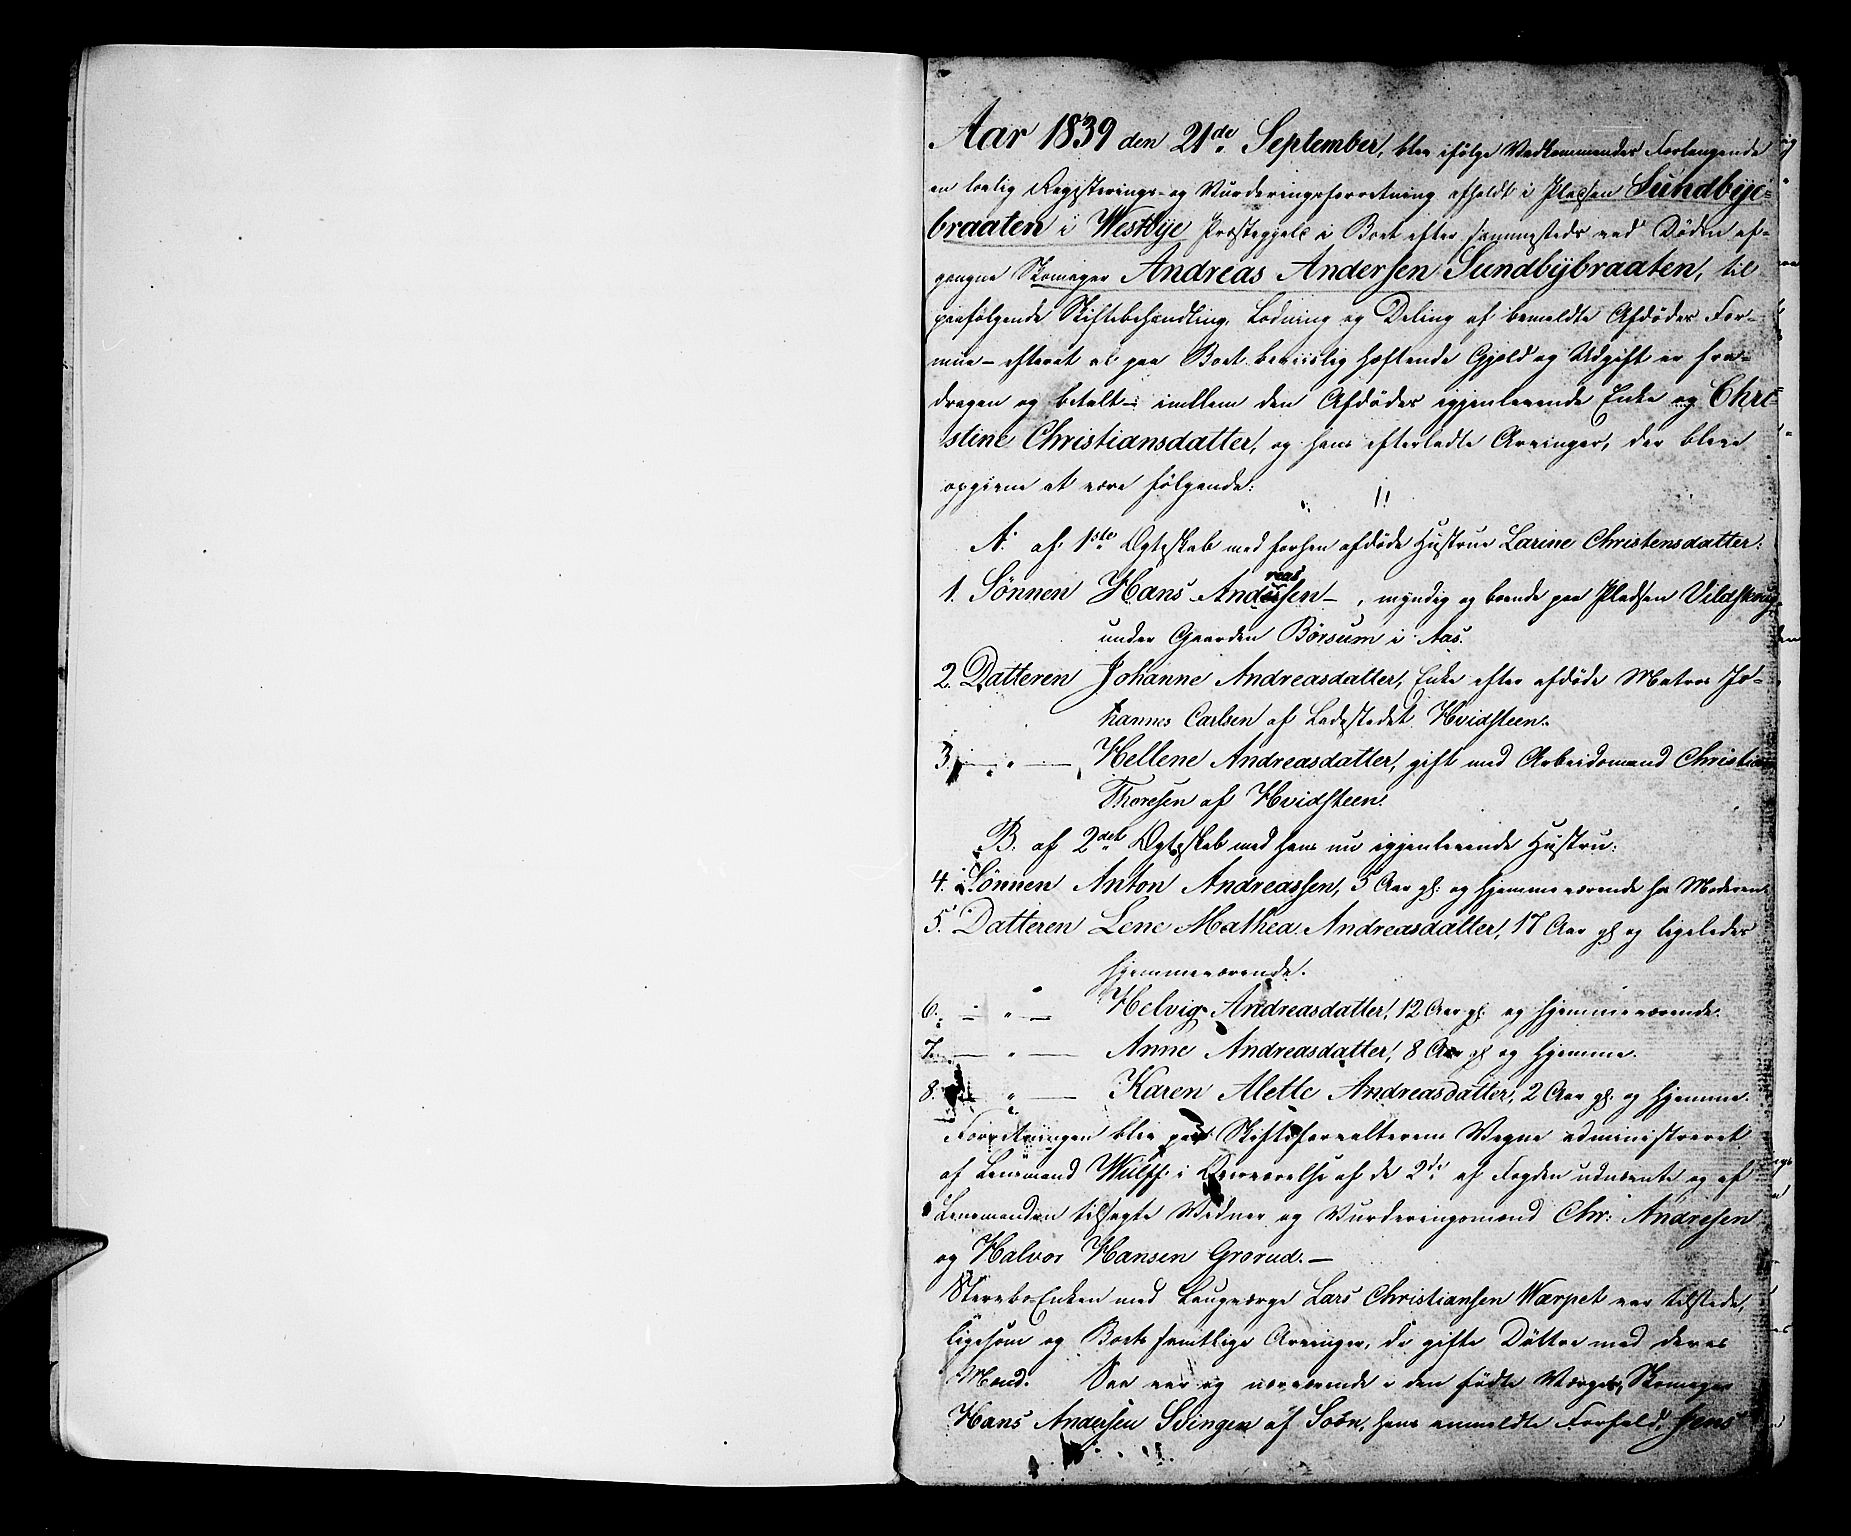 Aar 1839 den 21de September, blev ifølge Vedkommendes Forlangende
en lovlig Registerings- og Vurderingsforretning afholdt i Pladsen Sundbye-
braaten i Westbye Præstegjeld i Boet efter sammesteds ved Døden af-
gangne Skomager Andreas Andersen Sundbybraaten, til
paafølgende Skiftebehandling, Lodning og Deling af bemeldte Afdødes For-
mue – efterat al paa Boet beviislig hæftende Gjeld og Udgift er fra-
dragen og betalt – imellem den Afdødes igjenlevende Enke og Chri-
stine Christiansdatter, og hans efterladte Arvinger, der bleve
opgivne at være følgende:
A. af 1ste Ægteskab med forhen afdøde Hustrue Larine Christensdatter:
1. Sønnen Hans Andreassen –, myndig og boende paa Pladsen Vildskrug
under Gaarden Børsum i Aas.
2. Datteren Johanne Andreasdatter, Enke efter afdøde Matros Jo-
hannes Carlsen af Ladestedet Hvidsteen.
3. – " – Hellene Andreasdatter, gift med Arbeidsmand Christian
Thoresen af Hvidsteen.
B. af 2det Ægteskab med hans nu igjenlevende Hustru:
4. Sønnen Anton Andreassen, 5 Aar gl. og hjemmeværende hos Moderen.
5. Datteren Lene Mathea Andreasdatter, 17 Aar gl. og ligeledes
hjemmeværende.
6. – " – Helvig Andreasdatter, 12 Aar gl. og hjemmeværende.
7. – " – Anne Andreasdatter, 8 Aar gl. og hjemme.
8. – " – Karen Alette Andreasdatter, 2 Aar gl. og hjemme.
Forretningen blev paa Skifteforvalterens Vegne administreret
af Lensmand Wulff i Overværelse af de 2de af Fogden udnævnte og af
Lensmanden tilsagte Vidner og Vurderingsmænd Chr: Andresen
og Halvor Hansen Grorud. –
Stervbo-Enken med Laugværge Lars Christiansen Wærpet var tilstede,
ligesom og Boets samtlige Arvinger, de gifte Døttre med deres
Mænd. Saa var og nærværende den fødte Værge, Skomager
Hans Andersen Svingen af Soon, hans anmeldte Forfald, hans